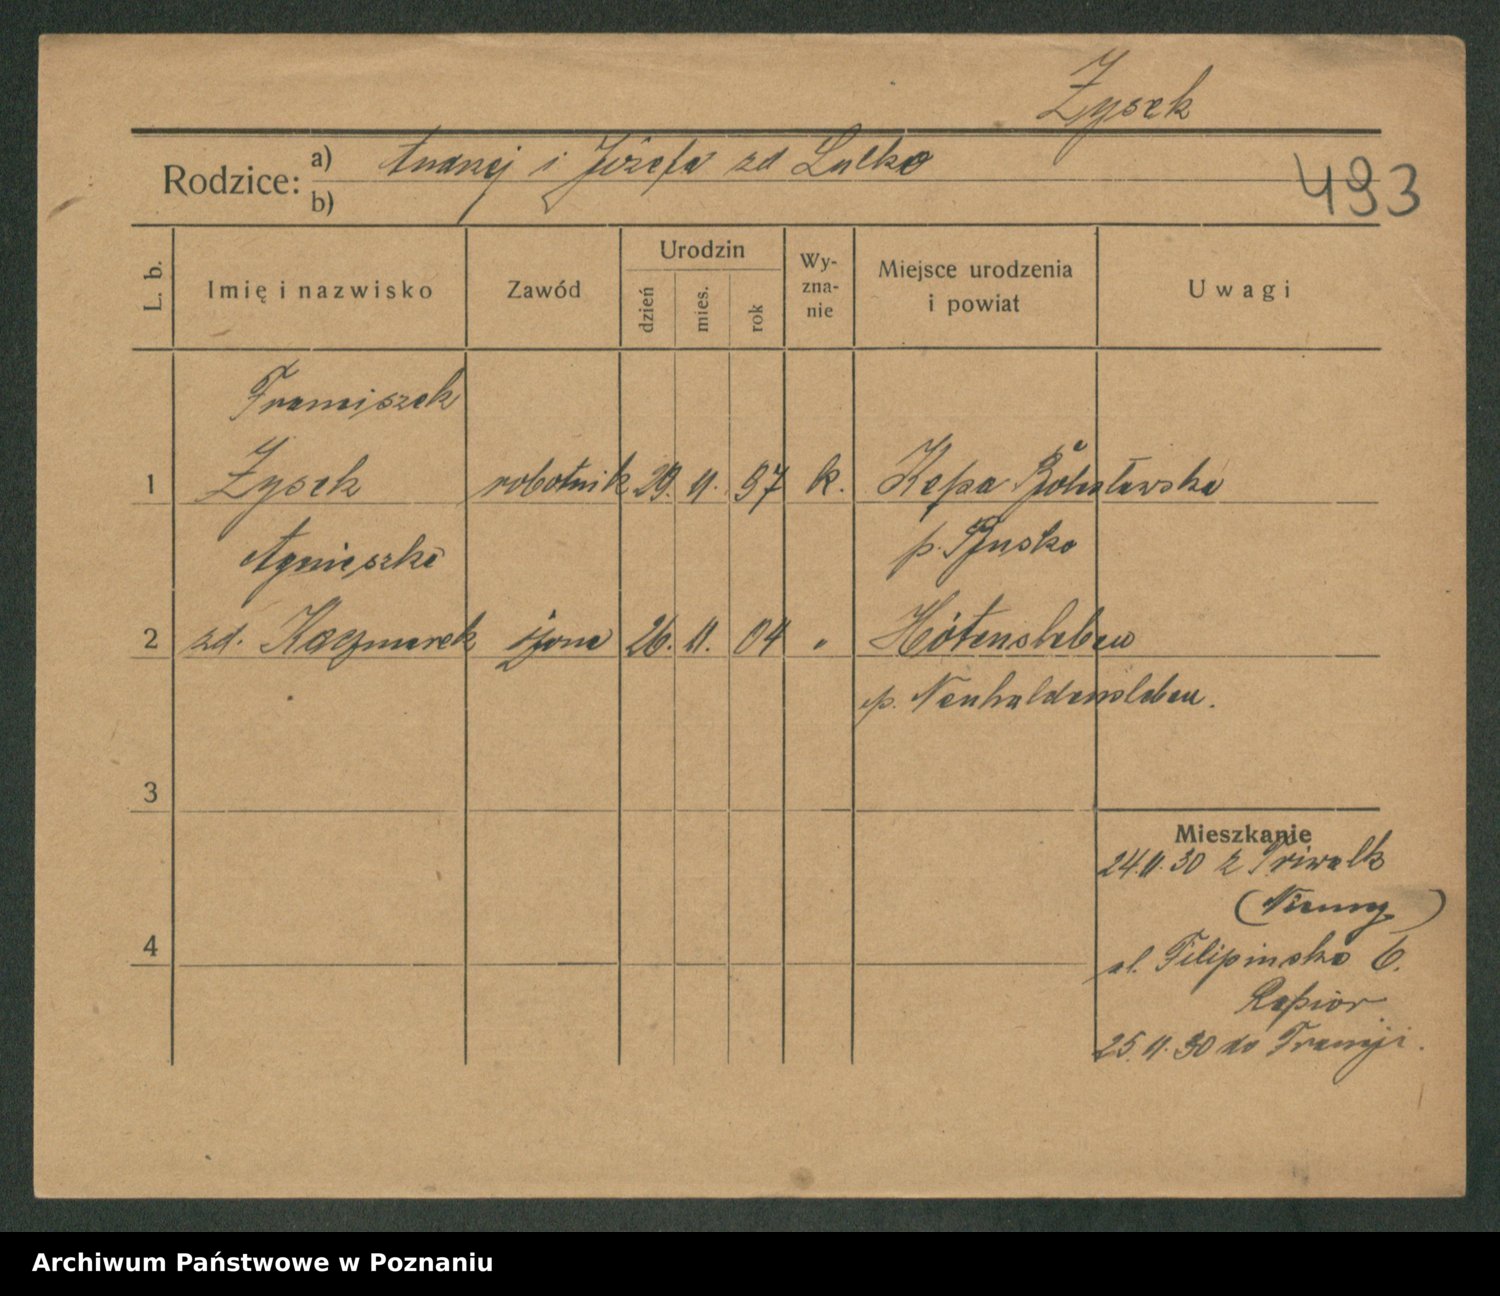 Zysek
Rodzice: a) Andrzej i Józefa zd Lulko
b)
493
L. b. Imię i nazwisko Zawód Urodzin dzień mies. rok Wy-zna-nie Miejsce urodzenia i powiat Uwagi
Franciszek
1 Zysek robotnik 29. 11. 97 k. Kępa
Agnieszka p. Busko
2 zd. Kaczmarek żona 26. 11. 04 " Hötensleben
p. Neuhaldensleben.
3
Mieszkanie
24.11.30 z
(Niemcy)
4
ul. Filipińska 6.
Rapior
25.11.30 do Francji.
Archiwum Państwowe w Poznaniu